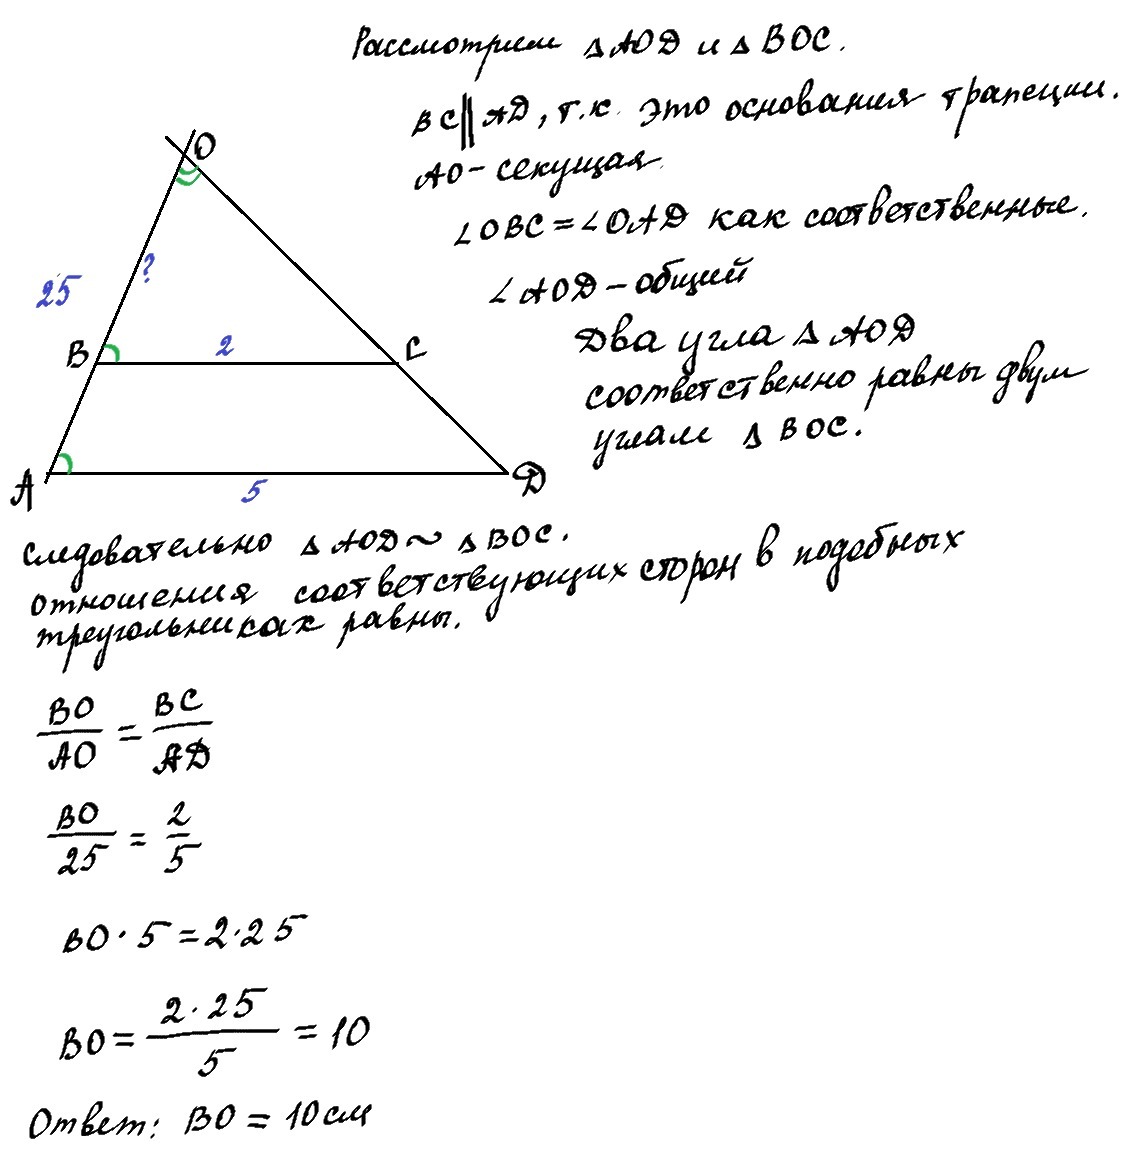 Рассмотрим △AOD и △BOC.
BC∥AD, т.к. это основания трапеции.
AO - секущая.
∠OBC = ∠OAD как соответственные.
∠AOD - общий
Два угла △AOD
соответственно равны двум
углам △BOC.
O
25
?
B
2
C
A
5
D
Следовательно △AOD ~ △BOC.
отношения соответствующих сторон в подобных
треугольниках равны.
BO/AO = BC/AD
BO/25 = 2/5
BO · 5 = 2 · 25
BO = 2 · 25/5 = 10
Ответ: BO = 10 см